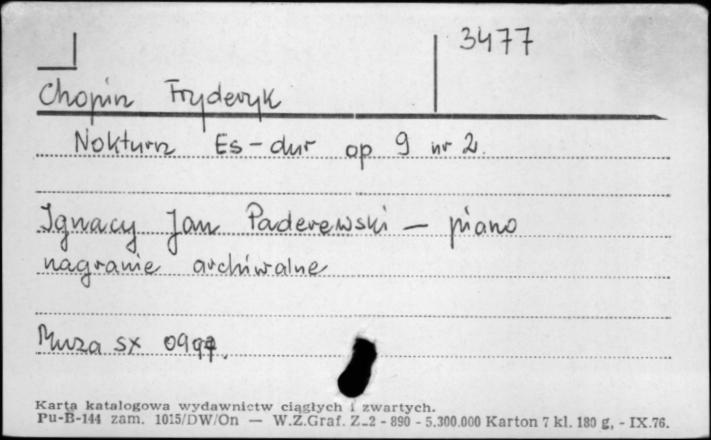 3477
Chopin Fryderyk
Nokturn Es-dur op 9 nr 2.
Ignacy Jan Paderewski – piano
nagranie archiwalne
Muza sx
Karta katalogowa wydawnictw ciągłych i zwartych.
Pu-B-144 zam. 1015/DW/On — W.Z.Graf. Z-2 - 890 - 5.300.000 Karton 7 kl. 180 g, - IX.76.